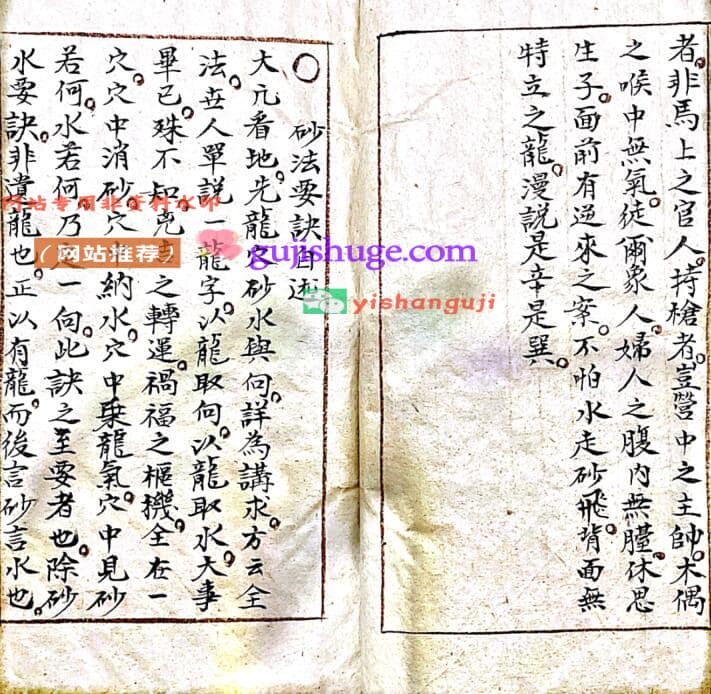 者。非馬上之官人。持槍者。豈營中之主帥。木偶
之喉中無氣。徒爾象人。婦人之腹内無休思
生子。面前有逆來之案。不怕水走砂飛。背面無
特立之龍。漫説是辛是巽。
砂法要訣自述
大凢看地。先龍穴砂水與向。詳為講求。方云全
法。世人單説一龍字。以龍取向。以龍取水。大事
畢已。殊不知之轉運。禍福之樞機。全在一
穴。穴中消砂。穴納水。穴中乗龍氣。穴中見砂
若何。水若何。乃一向。此訣之至要者也。除砂
水要訣。非遺龍也。正以有龍。而後言砂言水也。
网站专用非资料水印
(网站推荐)
gujishuge.com
yishanguji